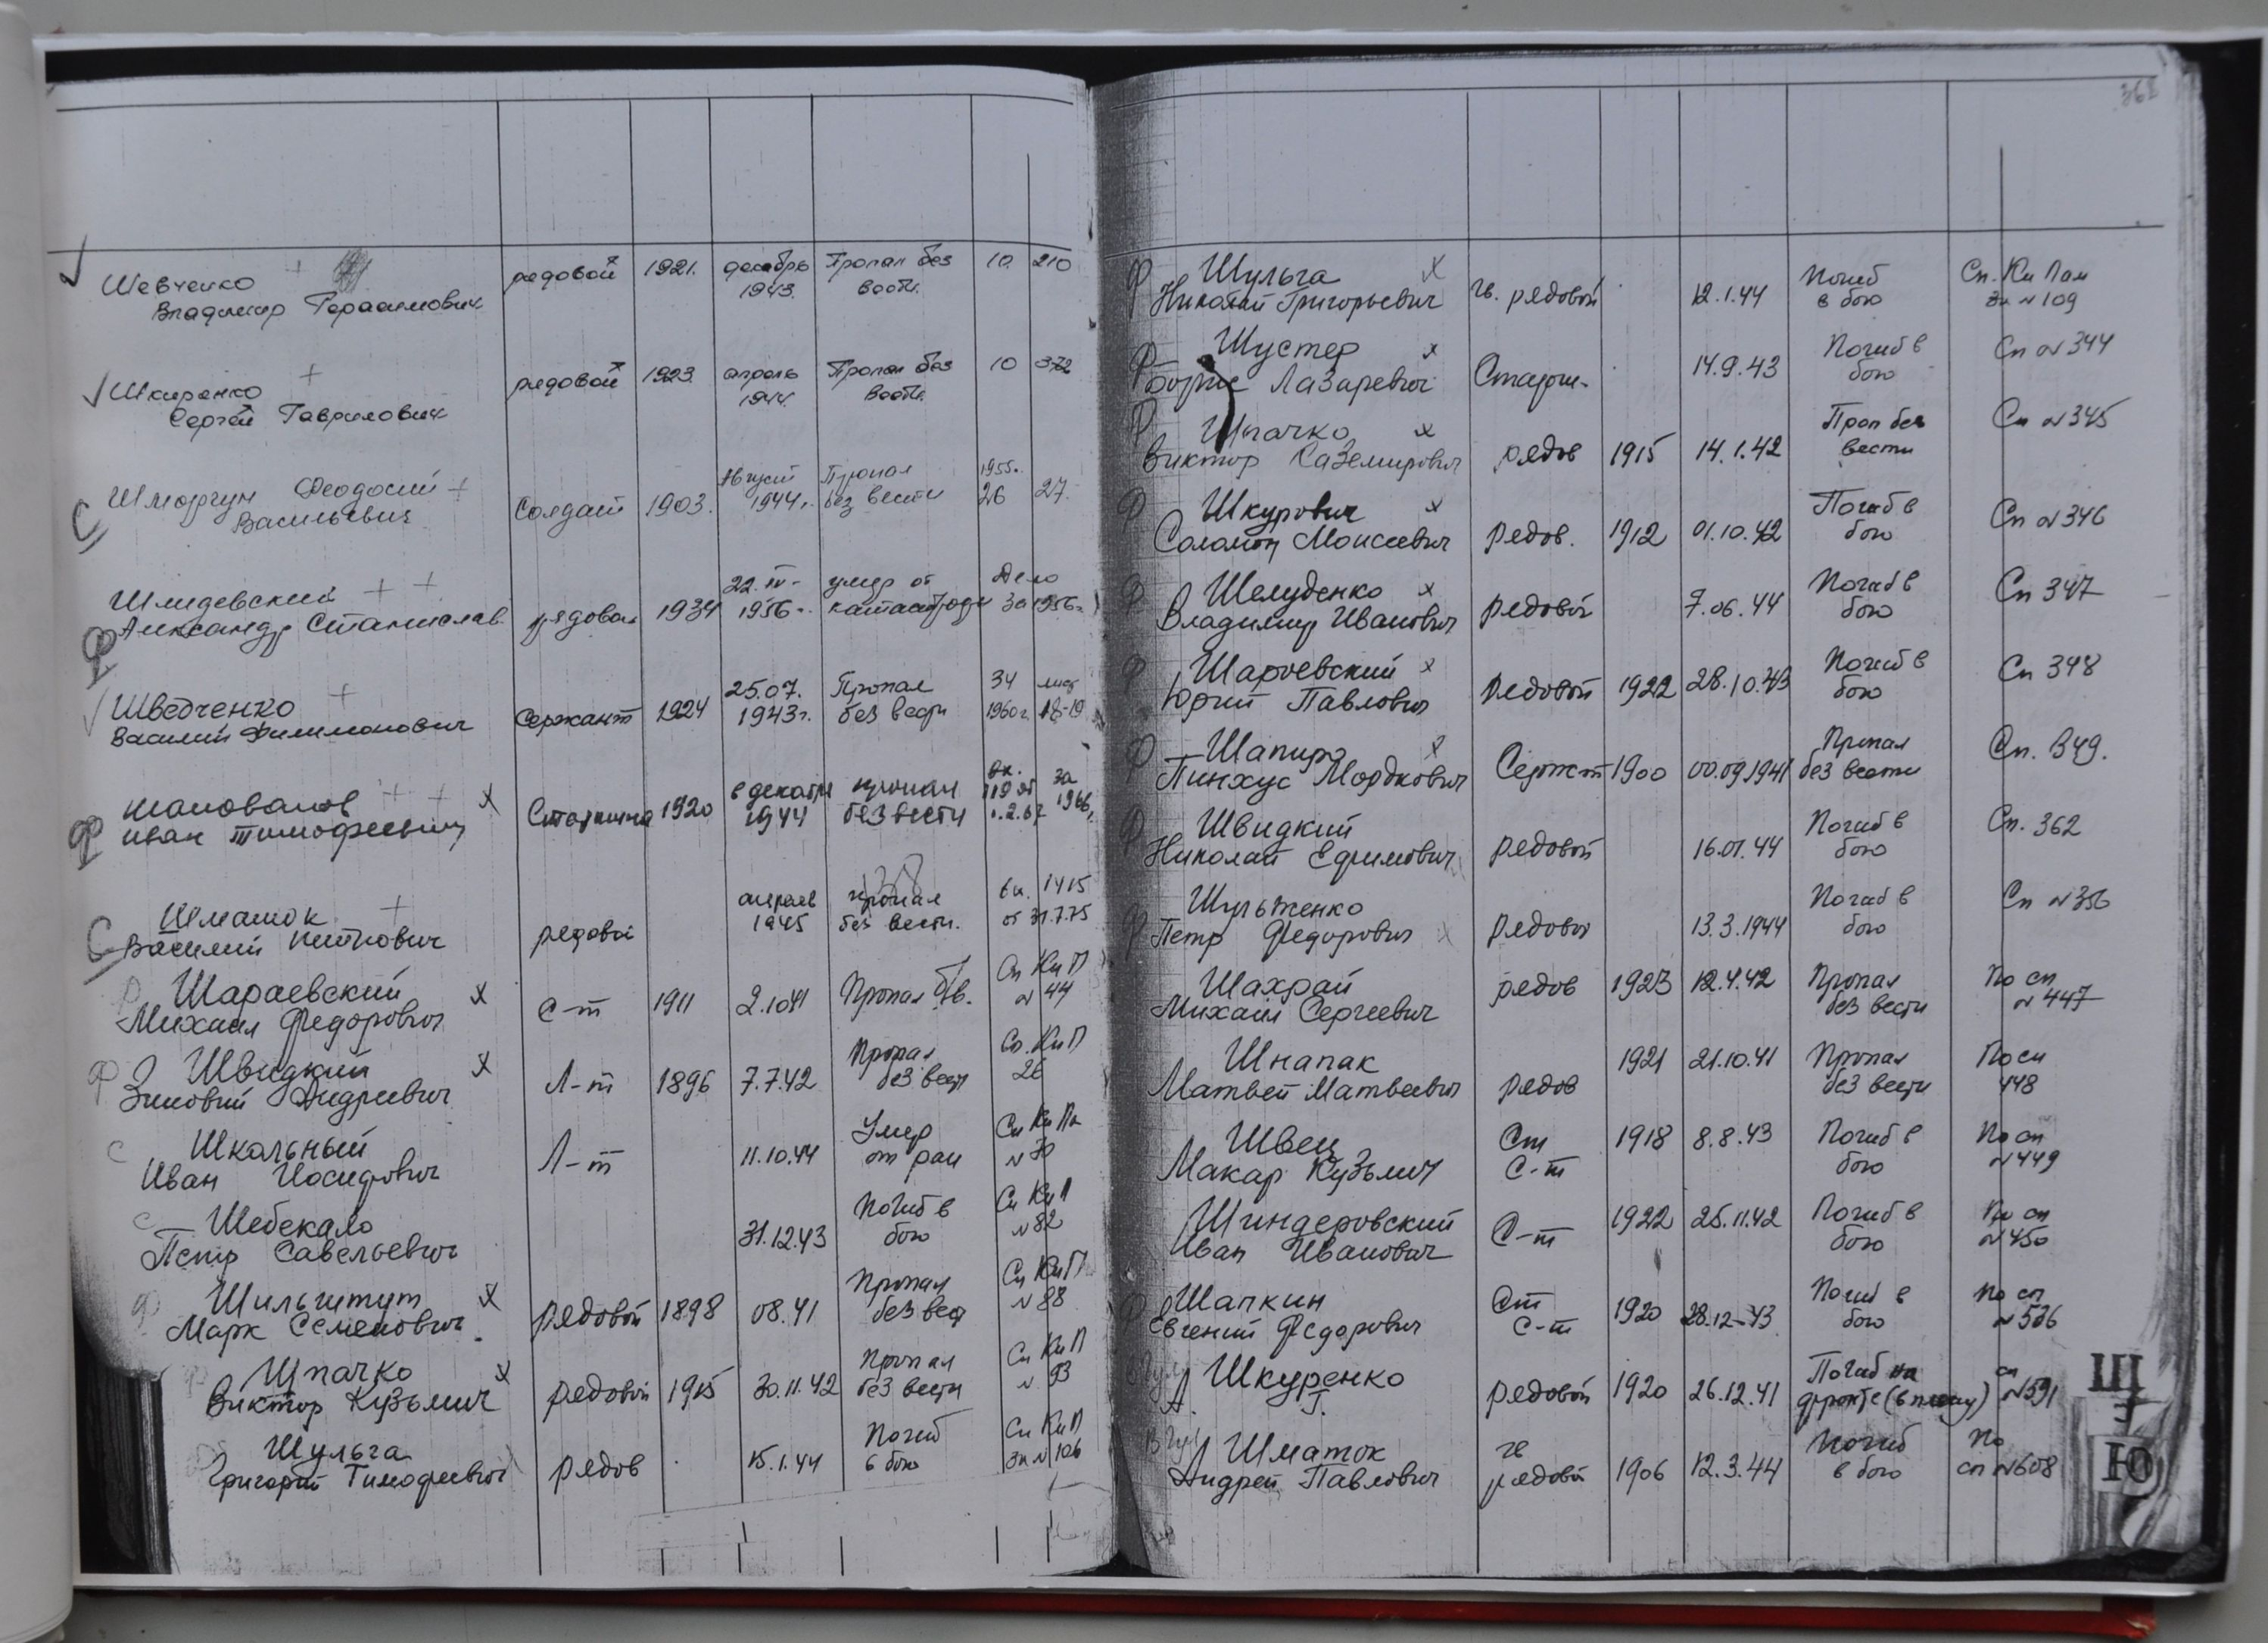 Шевченко редовой 1921. декабрь Пропал без 10. 210
Владимир Герасимович 1943. вести.
Шкиренко редовой 1923. апрель Пропал без 10 372
Сергей Гаврилович 1944. вести.
Шморгун Феодосий Солдат 1903. Август Пропал 1955г. 27.
Васильевич 1944г. без вести 26
Шлидевский рядовой 1934 22.IV- умер от Дело
Александр Станислав. 1956г. за 1956г.
Шведченко Сержант 1924 25.07. Пропал 34 лист
Василий Филимонович 1943г. без вести 1960г. 18-19
Шаповалов Старшина 1920 в декабре пропал вх. за
Иван Тимофеевич 1944 без вести 119 от 1.2.67 1966г.
Шматок редовой апреле пропал вх. 1415
Василий 1945 без вести. от 31.7.75
Шараевский С-т 1911 2.10.41 Пропал б/в. Сп Ки П
Михаил Федорович № 44
Швидкий Л-т 1896 7.7.42 Пропал Сп. Ки П
Зиновий Андреевич без вест 26
Школьный Л-т 11.10.44 Умер Сп Ки Па
Иван Иосифович от ран № 30
Шебекало 31.12.43 Погиб в Сп Ки П
Петр Савельевич бою № 82
Шильштут редовой 1898 08.41 Пропал Сп Ки П
Марк Семенович без вест № 88
Шпачко редовой 1915 30.11.42 Пропал Сп Ки П
Виктор Кузьмич без вести № 93
Шульга редов 15.1.44 Погиб Сп Ки П
Григорий Тимофеевич в бою зн № 106
368
Шульга гв. редовой 12.1.44 Погиб Сп. Ки Пам
Николай Григорьевич в бою зн № 109
Шустер Старш. 14.9.43 Погиб в Сп № 344
Борис Лазаревич бою
Шпачко редов 1915 14.1.42 Проп без Сп № 345
Виктор Каземирович вести
Шкурович Редов. 1912 01.10.42 Погиб в Сп № 346
Соломон Моисеевич бою
Шелуденко редовой 7.06.44 Погиб в Сп 347
Владимир Иванович бою
Шароевский Редовой 1922 28.10.43 Погиб в Сп 348
Юрий Павлович бою
Шапиро Сержт 1900 00.09.1941 Пропал Сп. 349.
Пинхус Мордкович без вести
Швидкий редовой 16.01.44 Погиб в Сп. 362
Николай Ефимович бою
Шульженко редовой 13.3.1944 Погиб в Сп № 356
Петр Федорович бою
Шахрай редов 1923 12.4.42 Пропал По сп
Михаил Сергеевич без вести № 447
Шнапак 1921 21.10.41 Пропал По сп
Матвей Матвеевич редов без вести 448
Швец Ст 1918 8.8.43 Погиб в По сп
Макар Кузьмич С-т бою № 449
Шиндеровский С-т 1922 25.11.42 Погиб в По сп
Иван Иванович бою № 450
Шапкин Ст 1920 28.12-43 Погиб в По сп
Евгений Федорович С-т бою № 536
Шкуренко редовой 1920 26.12.41 Погиб на сп
А. Т. фронте (в плену) № 591
Шматок гв 1906 12.3.44 погиб По
Андрей Павлович редовой в бою сп № 608
Щ
Э
Ю